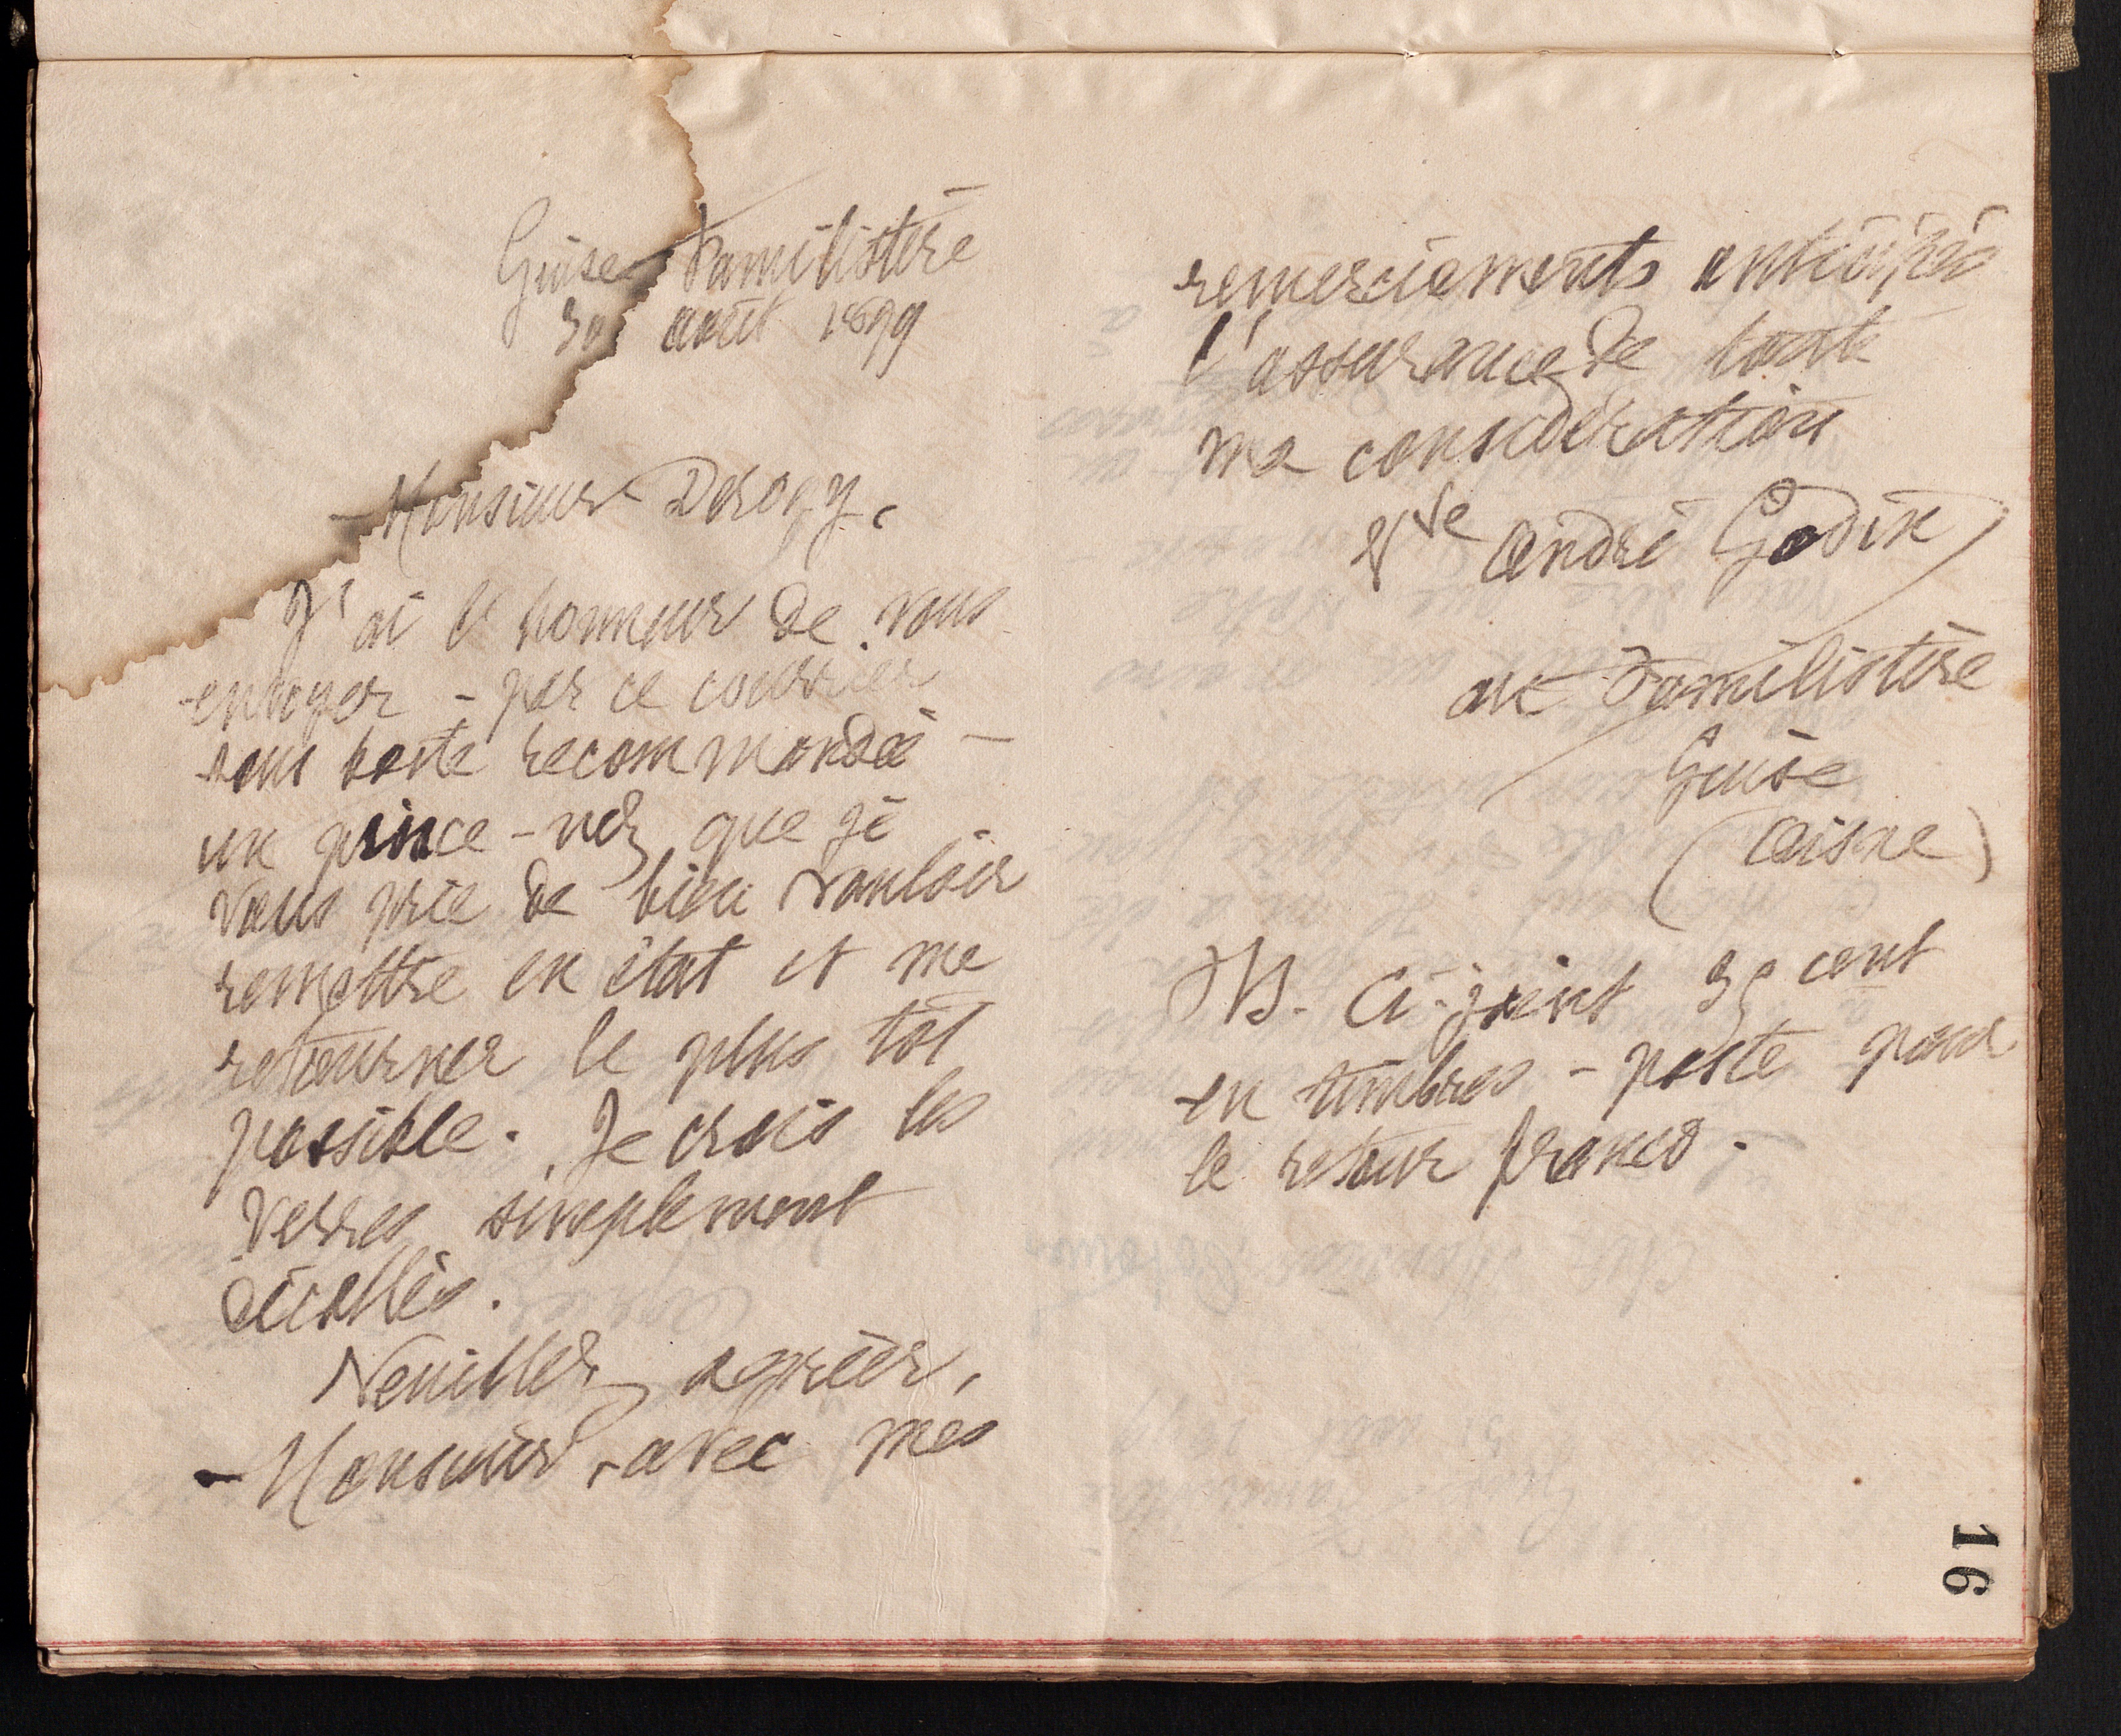 Guise Familistère
30 août 1899
Monsieur Derogy,
J'ai l'honneur de vous
envoyer - par ce courrier
sous boîte recommandée -
un pince-nez que je
vous prie de bien vouloir
remettre en état et me
retourner le plus tôt
possible. Je crois les
verres simplement
décollés.
Veuillez agréer,
Monsieur, avec mes
remerciements anticipés
l'assurance de toute
ma considération
Vve André Godin
au Familistère
Guise
(Aisne)
NB. Ci-joint 35 cent
en timbres-poste pour
le retour franco.
16